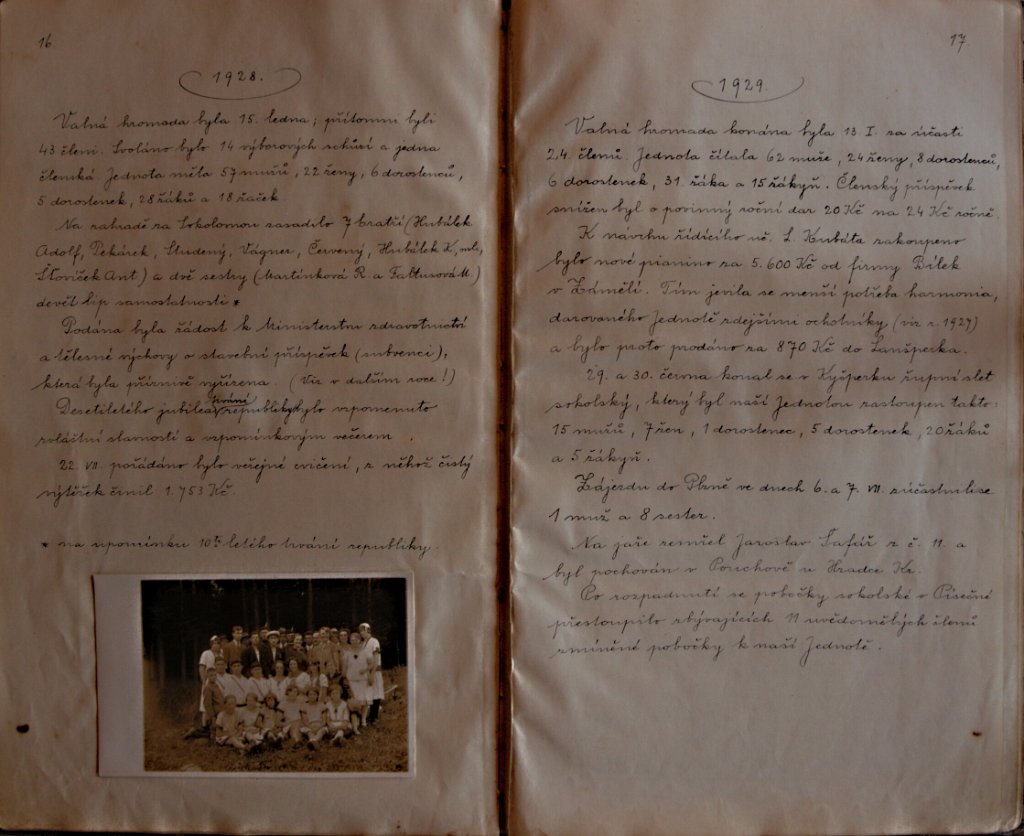 16
1928.
Valná hromada byla 15. ledna; přítomni byli
43 členi. Svoláno bylo 14 výborových schůzí a jedna
členská. Jednota měla 57 mužů, 22 ženy, 6 dorostenců,
5 dorostenek, 28 žáků a 18 žaček.
Na zahradě za Sokolovnou zasadilo 7 bratří (Hubálek
Adolf, Pekárek, Studený, Vágner, Červený, Hubálek K. ml.,
Šťovíček Ant) a dvě sestry (Martinková R. a Faltusová M.)
devět lip samostatnosti *
Podána byla žádost k Ministerstvu zdravotnictví
a tělesné výchovy o stavební příspěvek (subvenci),
která byla příznivě vyřízena. (Viz v dalším roce!)
Desetiletého jubilea trvání republiky bylo vzpomenuto
zvláštní slavností a vzpomínkovým večerem.
22. VII. pořádáno bylo veřejné cvičení, z něhož čistý
výtěžek činil 1.753 Kč.
* na upomínku 10ti letého trvání republiky.
17
1929.
Valná hromada konána byla 13 I. za účasti
24. členů. Jednota čítala 62 muže, 24 ženy, 8 dorostenců,
6 dorostenek, 31. žáka a 15 žákyň. Členský příspěvek
snížen byl o povinný roční dar 20 Kč na 24 Kč ročně.
K návrhu řídícího uč. L. Kubáta zakoupeno
bylo nové pianino za 5.600 Kč od firmy Bílek
v Žámělí. Tím jevila se menší potřeba harmonia,
darovaného Jednotě zdejšími ochotníky (viz r. 1927)
a bylo proto prodáno za 870 Kč do Lanšperka.
29. a 30. června konal se v Kyšperku župní slet
sokolský, který byl naší Jednotou zastoupen takto:
15 mužů, 7 žen, 1 dorostenec, 5 dorostenek, 20 žáků
a 5 žákyň.
Zájezdu do Plzně ve dnech 6. a 7. VII. zúčastnili se
1 muž a 8 sester.
Na jaře zemřel Jaroslav Šafář z č. 11. a
byl pochován v Pouchově u Hradce Kr.
Po rozpadnutí se pobočky sokolské v Písečné
přestoupilo zbývajících 11 uvědomělých členů
zmíněné pobočky k naší Jednotě.